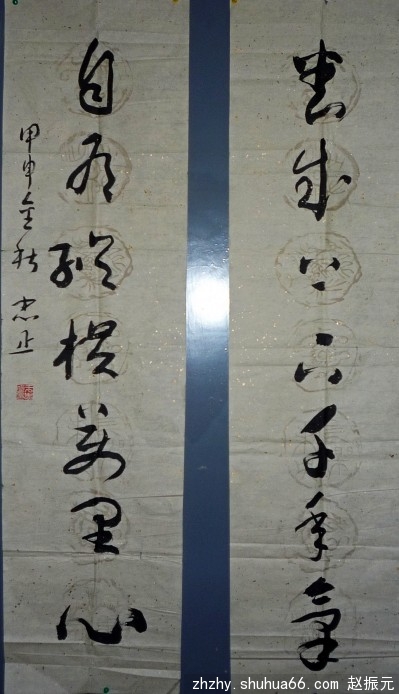 書成上下千年氣
自有縱橫萬里心
甲申金秋 忠正
zhzhy.shuhua66.com 赵振元